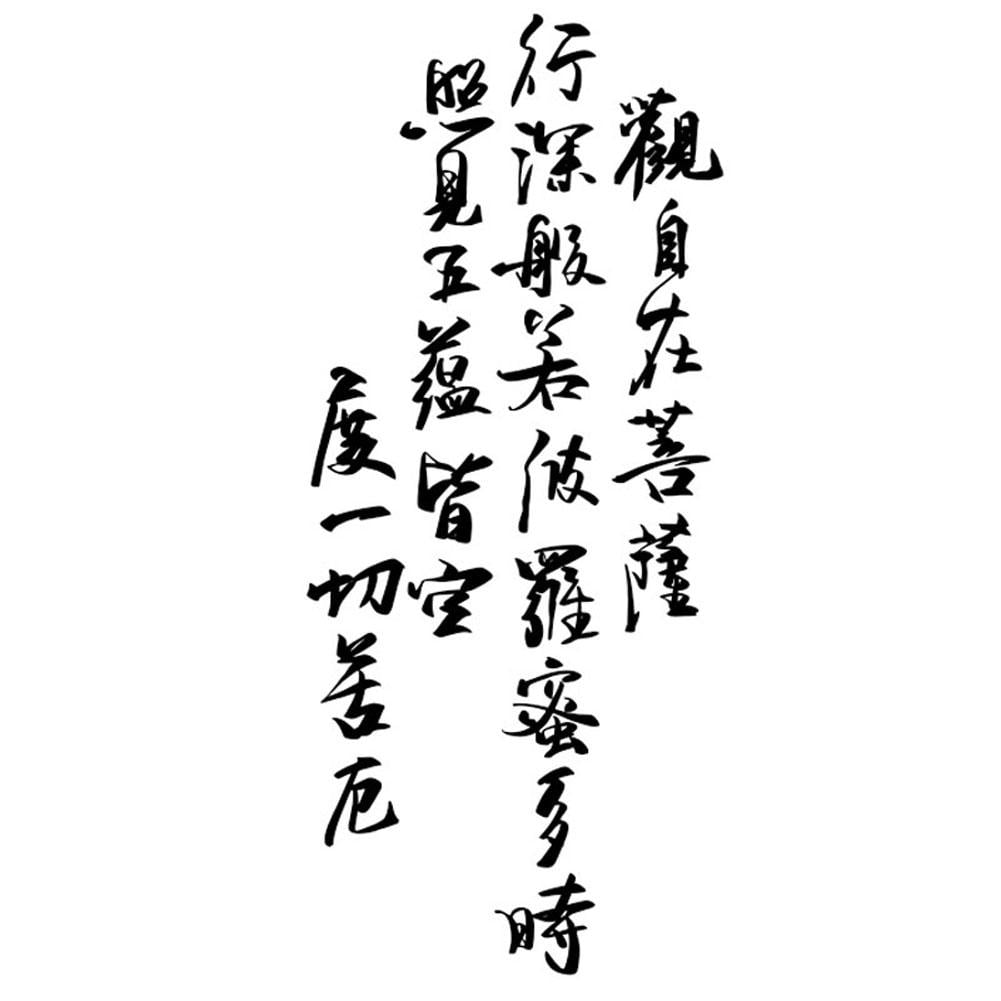 觀自在菩薩
行深般若波羅蜜多時
照見五蘊皆空
度一切苦厄